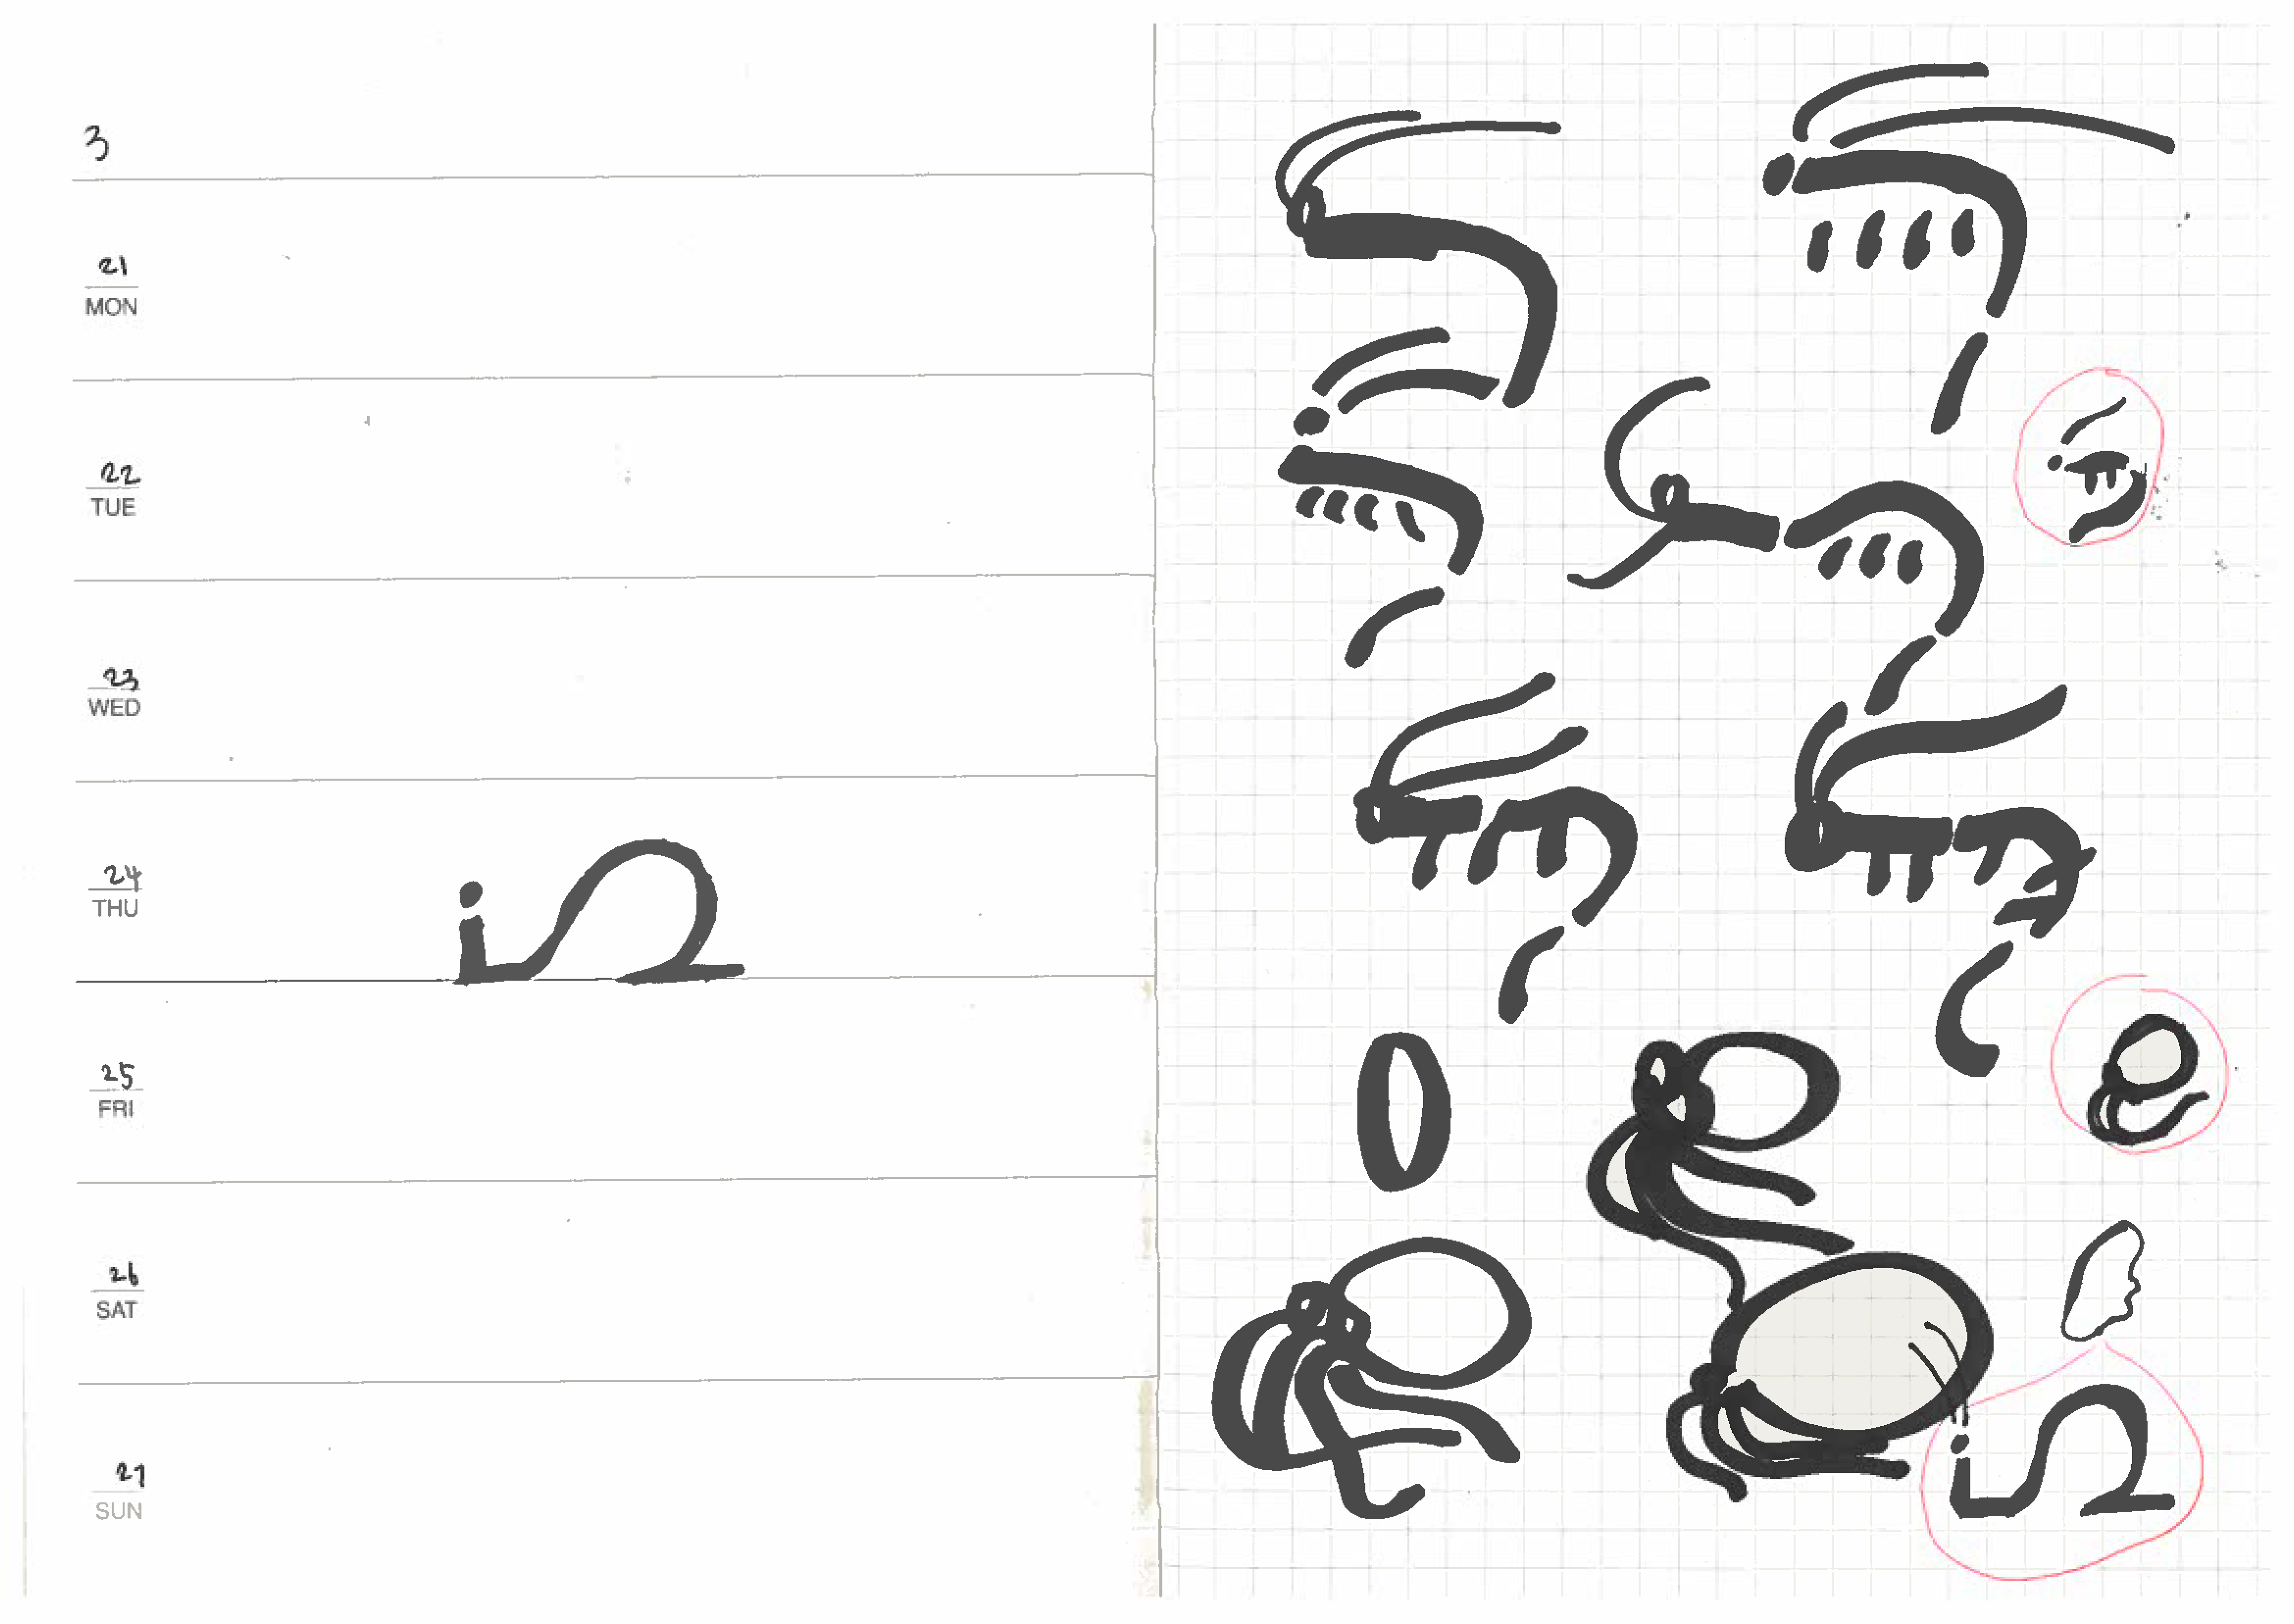 3
21
MON
22
TUE
23
WED
24
THU
25
FRI
26
SAT
27
SUN